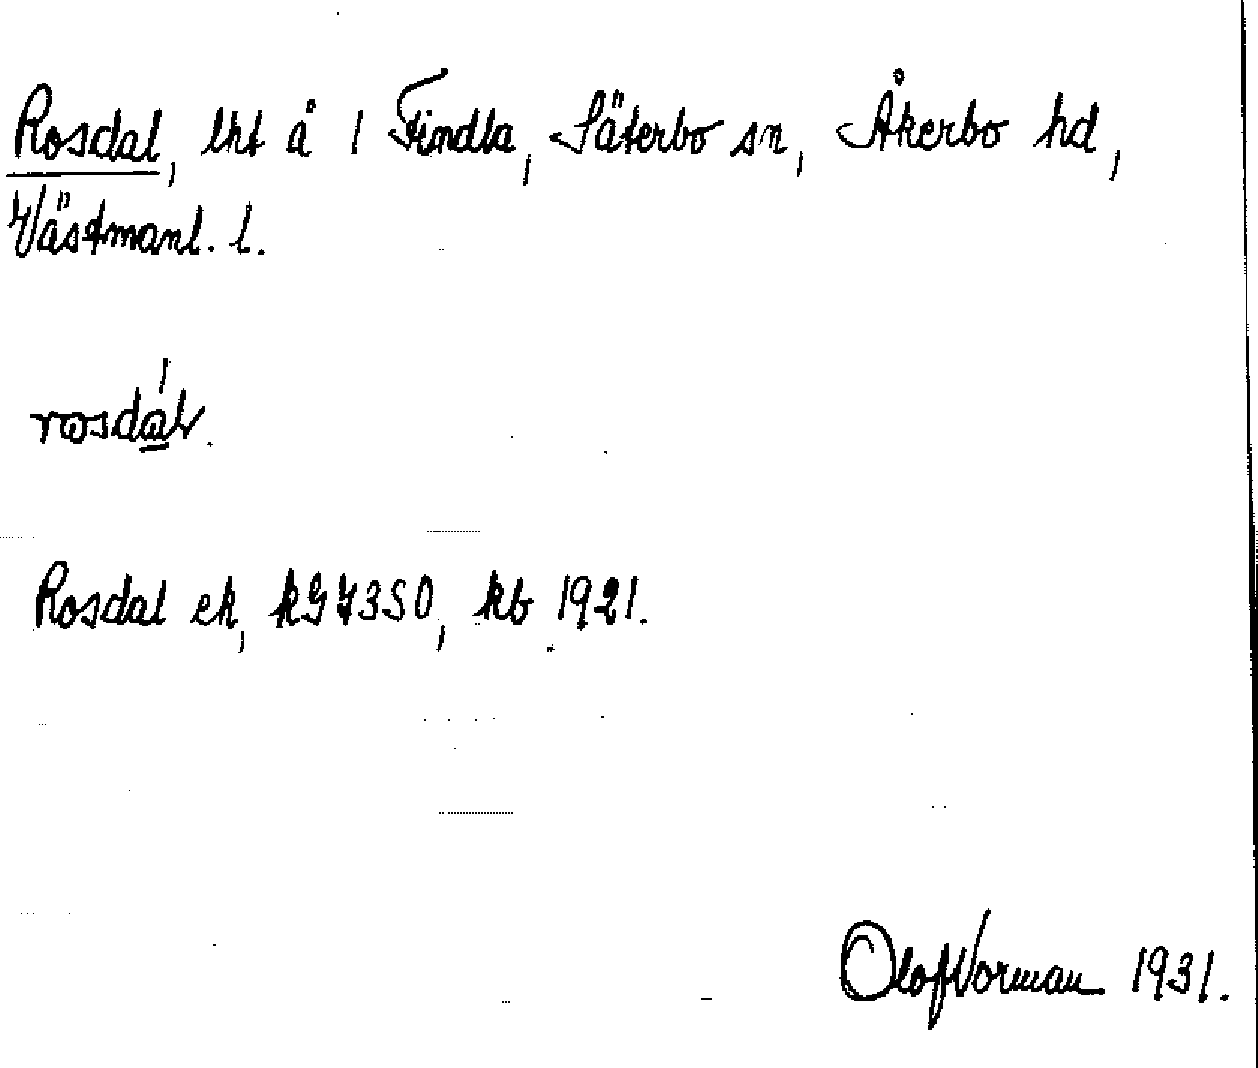 Rosdal, lht å 1 Findla, Säterbo sn, Åkerbo hd,
Västmanl. l.
rosdál.
Rosdal ek, kG73S0, kb 1921.
Olof Vorman 1931.